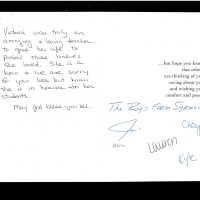 Victoria was truly an
amazing & loving teacher
to give her life to
protect those babies
she loved. She is a
hero & we are sorry
for your loss but know
she is in heaven w/ her
students.
May god bless you all.
...but hope you know
that othe
are thinking of yo
caring about y
and wishing yo
comfort and peac
The Boys From Syracuse
Lauren
Kyle